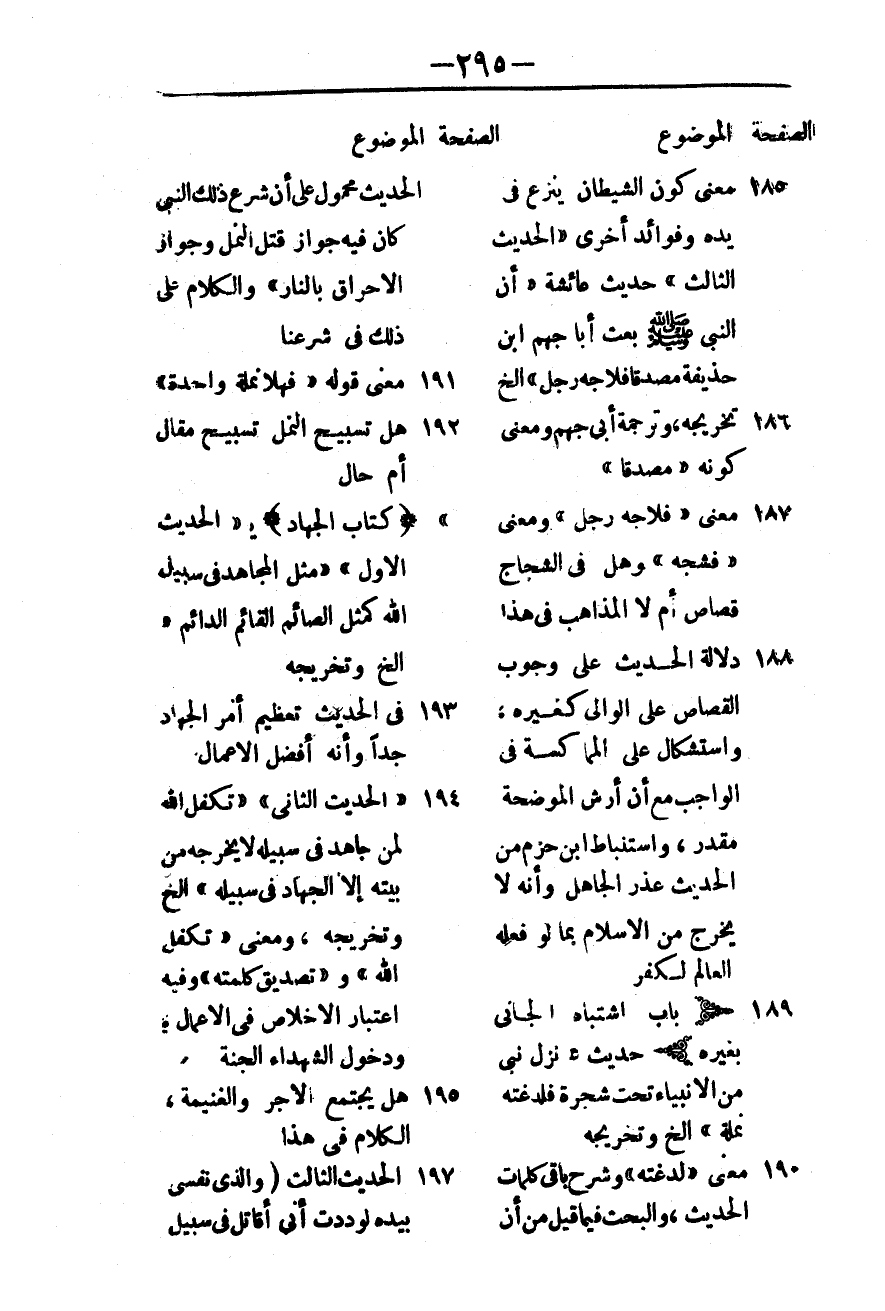 —٢٩٥—
الصفحة الموضوع
١٨٥ معنى كون الشيطان ينزع فى
يده وفوائد أخرى «الحديث
الثالث» حديث عائشة «أن
النبى ﷺ بعث أبا جهم ابن
حذيفة مصدقا فلاجه رجل» الخ
١٨٦ تخريجه، وترجمة أبى جهم ومعنى
كونه «مصدقا»
١٨٧ معنى «فلاجه رجل» ومعنى
«فشجه» وهل فى الشجاج
قصاص أم لا المذاهب فى هذا
١٨٨ دلالة الحديث على وجوب
القصاص على الوالى كغيره ؛
واستشكال على المماكسة فى
الواجب مع أن أرش الموضحة
مقدر ، واستنباط ابن حزم من
الحديث عذر الجاهل وأنه لا
يخرج من الاسلام بما لو فعله
العالم لكفر
١٨٩ باب اشتباه الجانى
بغيره حديث « نزل نبى
من الانبياء تحت شجرة فلدغته
نملة» الخ وتخريجه
١٩٠ معنى «لدغته» وشرح باقى كلمات
الحديث ، والبحث فيما قيل من أن
الصفحة الموضوع
الحديث محمول على أن شرع ذلك النبى
كان فيه جواز قتل النمل وجواز
الاحراق بالنار» والكلام على
ذلك فى شرعنا
١٩١ معنى قوله «فهلا نملة واحدة»
١٩٢ هل تسبيح النمل تسبيح مقال
أم حال
» ﴿كتاب الجهاد﴾ ، « الحديث
الاول» «مثل المجاهد فى سبيل
الله كمثل الصائم القائم الدائم «
الخ وتخريجه
١٩٣ فى الحديث تعظيم أمر الجهاد
جداً وأنه أفضل الاعمال
١٩٤ «الحديث الثانى» «تكفل الله
لمن جاهد فى سبيله لا يخرجه من
بيته إلا الجهاد فى سبيله» الخ
وتخريجه ، ومعنى «تكفل
الله» و «تصديق كلمته» وفيه
اعتبار الاخلاص فى الاعمال ؛
ودخول الشهداء الجنة
١٩٥ هل يجتمع الاجر والغنيمة ،
الكلام فى هذا
١٩٧ الحديث الثالث ( والذى نفسى
بيده لوددت أنى أقاتل فى سبيل